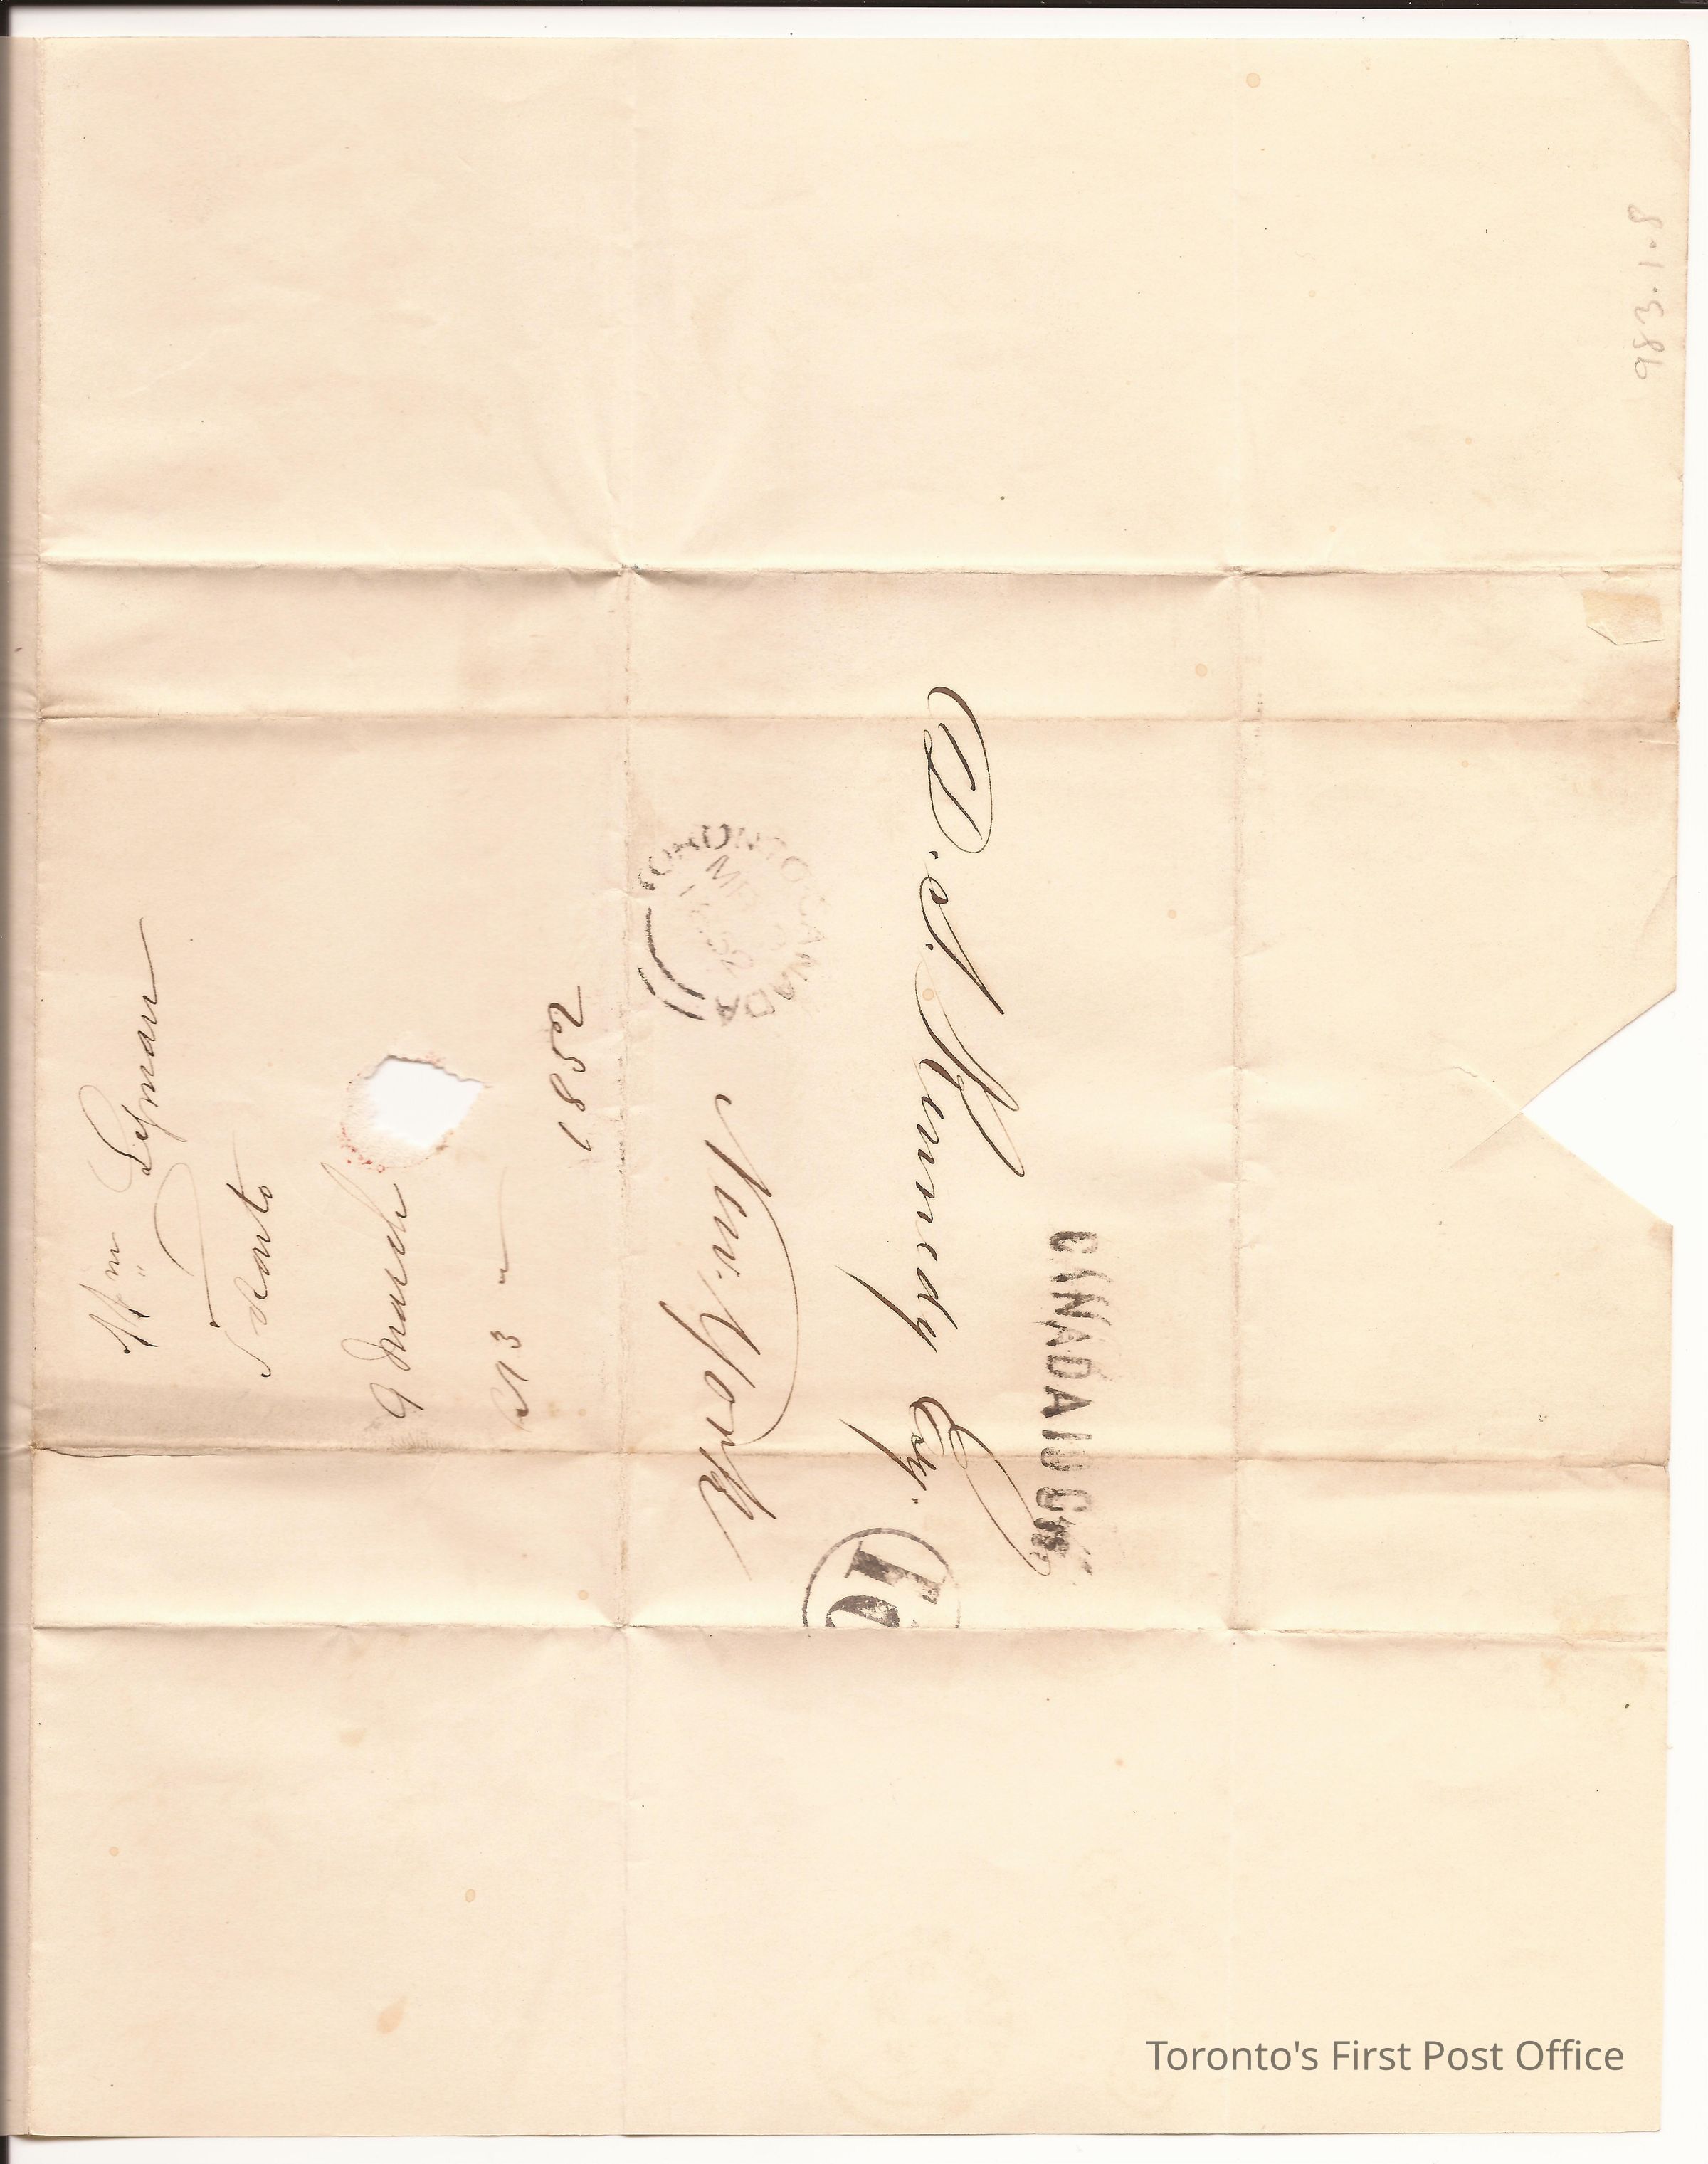 D. S. Kennedy Esq.
New York
CANADA 10 Cts
TORONTO CANADA
MR
1852
Wm Lyman
Toronto
9 March
1852
983.1.8
Toronto's First Post Office